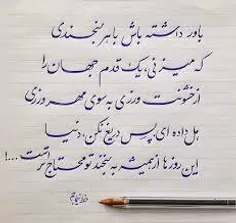 باور داشته باش با هر لبخندی
که میزنی، یک قدم جهان را
از خشونت ورزی به سوی مهرورزی
هل داده ای پس دریغ نکن، دنیا
این روزها از همیشه به لبخند تو محتاج تر است ...!